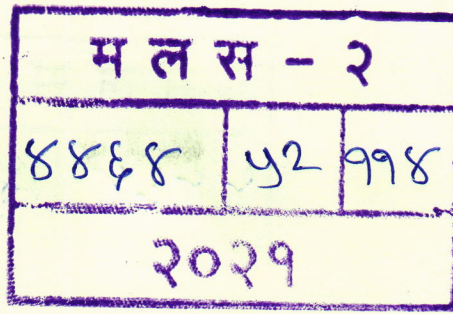 म ल स - २
४४६४ ५२ ११४
२०२१